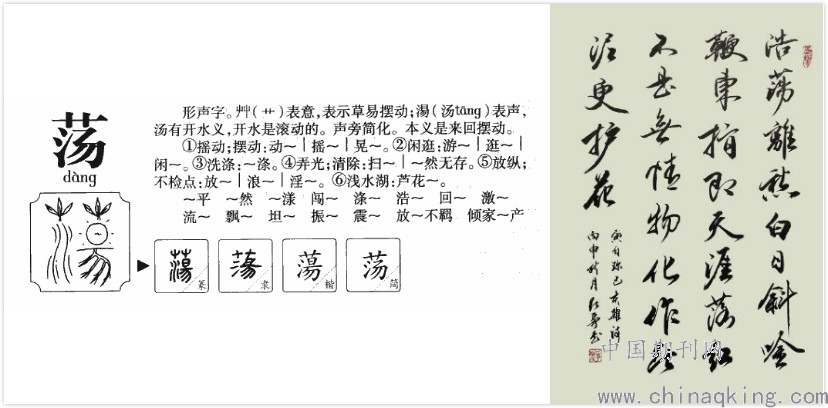 荡
dàng
形声字。艸(艹)表意,表示草易摆动;湯(汤tāng)表声,
汤有开水义,开水是滚动的。声旁简化。本义是来回摆动。
①摇动;摆动:动～│摇～│晃～。②闲逛:游～│逛～│
闲～。③洗涤:～涤。④弄光;清除:扫～│～然无存。⑤放纵;
不检点:放～│浪～│淫～。⑥浅水湖:芦花～。
～平 ～然 ～漾 闯～ 涤～ 浩～ 回～ 激～
流～ 飘～ 坦～ 振～ 震～ 放～不羁 倾家～产
蕩 篆
蕩 隶
蕩 楷
荡 简
浩荡離愁白日斜吟
鞭東指即天涯落紅
不是無情物化作春
泥更护花
自珍己亥雜詩
丙申秋月
中国期刊网
www.chinaqking.com